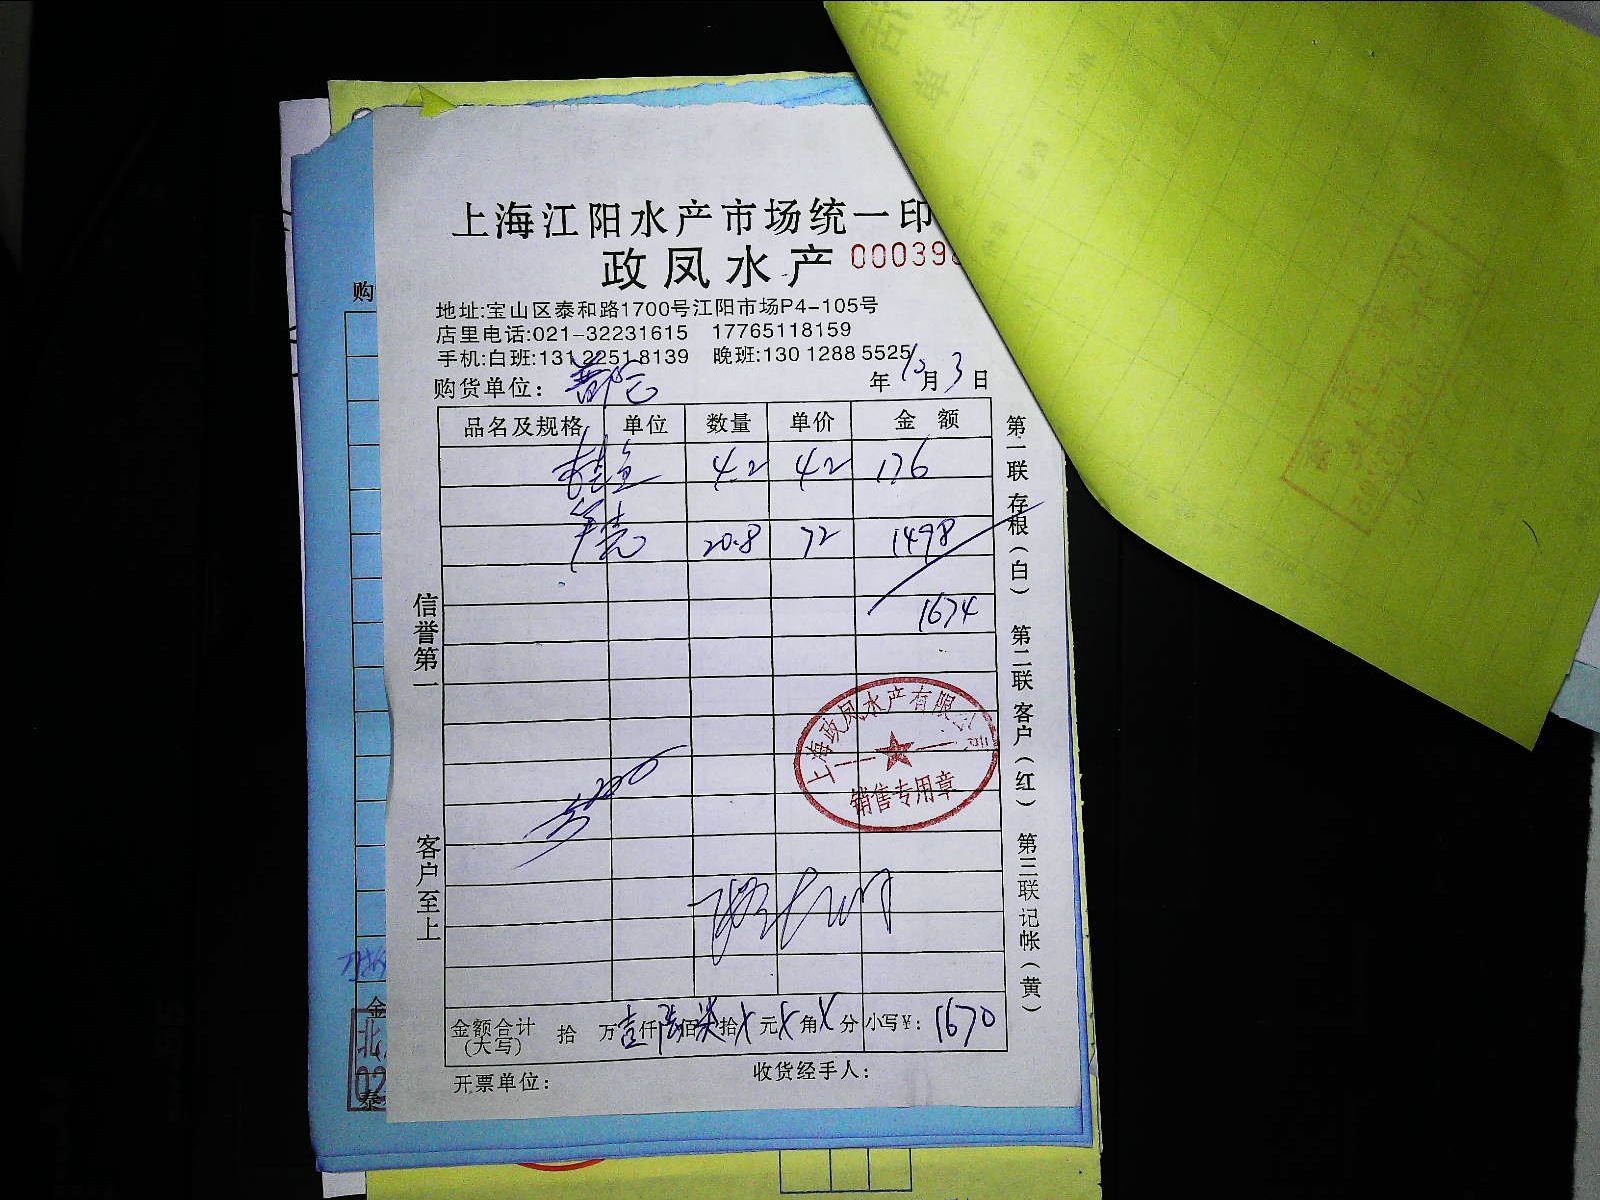 上海江阳水产市场统一印
政凤水产 00039
地址:宝山区泰和路1700号江阳市场P4-105号
店里电话:021-32231615 17765118159
手机:白班:131 2251 8139 晚班:130 1288 5525
购货单位: 普陀 年10月3日
品名及规格 单位 数量 单价 金额
桂鱼 4.2 42 176
笋壳 20.8 72 1498
1674
信誉第一
客户至上
第一联存根(白) 第二联客户(红) 第三联记帐(黄)
上海政凤水产有限公司
销售专用章
金额合计(大写) 拾 万壹仟陆佰柒拾 元 角 分 小写¥: 1670
开票单位: 收货经手人:
购
金
北
02
泰